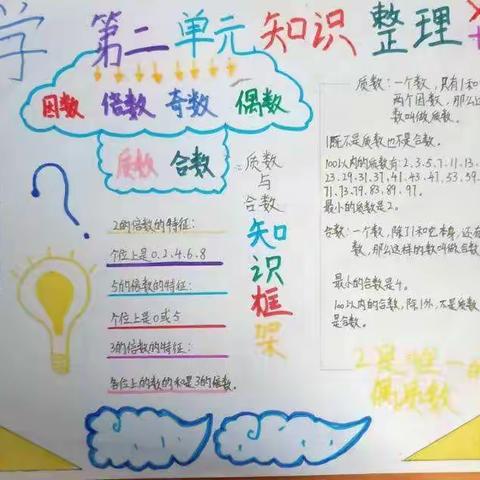 学 第二单元知识整理
因数 倍数 奇数 偶数
质数 合数
质数
与
合数
知识框架
2的倍数的特征:
个位上是0、2、4、6、8
5的倍数的特征:
个位上是0或5
3的倍数的特征:
各位上的数的和是3的倍数。
质数:一个数,只有1和
两个因数,那么这
数叫做质数。
1既不是质数也不是合数。
100以内的质数有:2、3、5、7、11、13、
23、29、31、37、41、43、47、53、59、
71、73、79、83、89、97。
最小的质数是2。
合数:一个数,除了1和它本身,还有
数,那么这样的数叫做合数
最小的合数是4。
100以内的合数,除1外,不是质数
是合数。
2是唯一的
偶质数